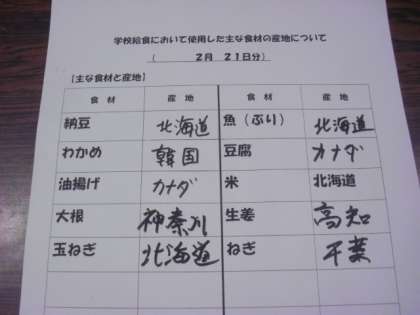 学校給食において使用した主な食材の産地について
(　　2月　21日分)
【主な食材と産地】
食材 産地 食材 産地
納豆 北海道 魚(ぶり) 北海道
わかめ 韓国 豆腐 カナダ
油揚げ カナダ 米 北海道
大根 神奈川 生姜 高知
玉ねぎ 北海道 ねぎ 千葉